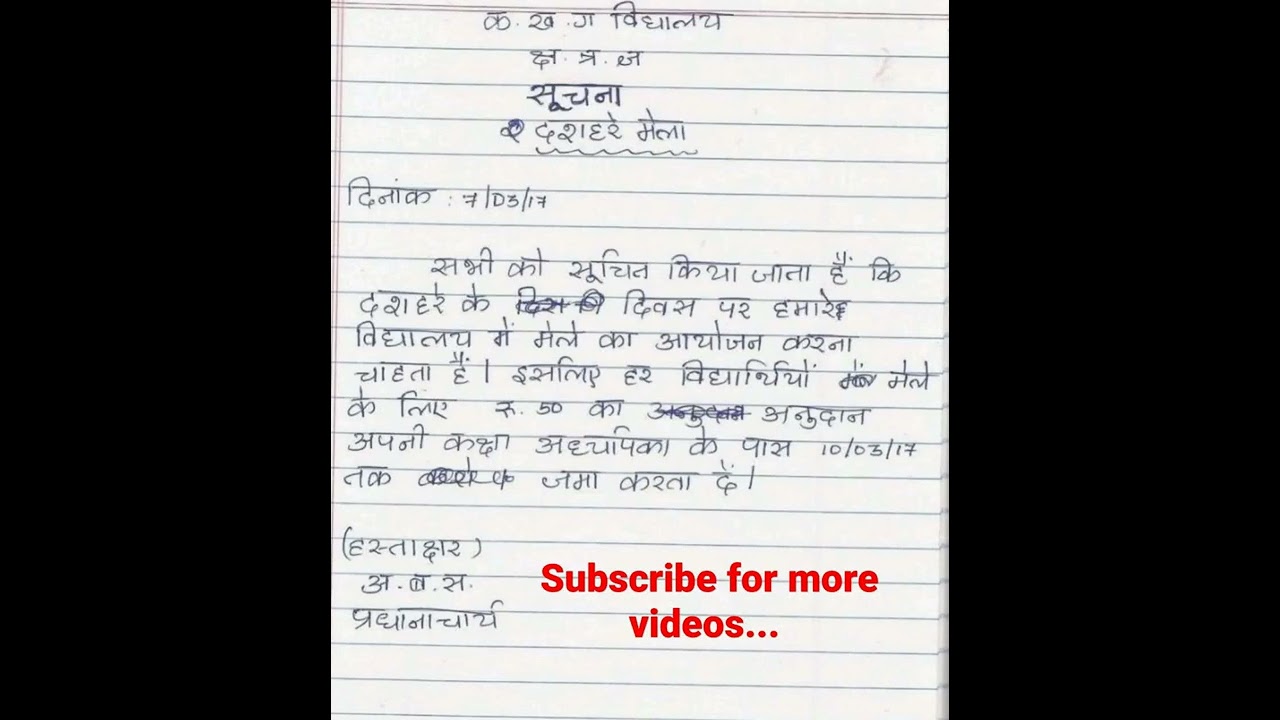 क. ख. ग विद्यालय
क्ष. त्र. ज्ञ
सूचना
दशहरे मेला
दिनांक : 7/03/17
सभी को सूचित किया जाता हैं कि
दशहरे के दिवस पर हमारे
विद्यालय में मेले का आयोजन करना
चाहता हैं। इसलिए हर विद्यार्थियों मेले
के लिए रु. 50 का अनुदान
अपनी कक्षा अध्यापिका के पास 10/03/17
तक जमा करता दें।
(हस्ताक्षर)
अ. ब. स.
प्रधानाचार्य
Subscribe for more
videos...